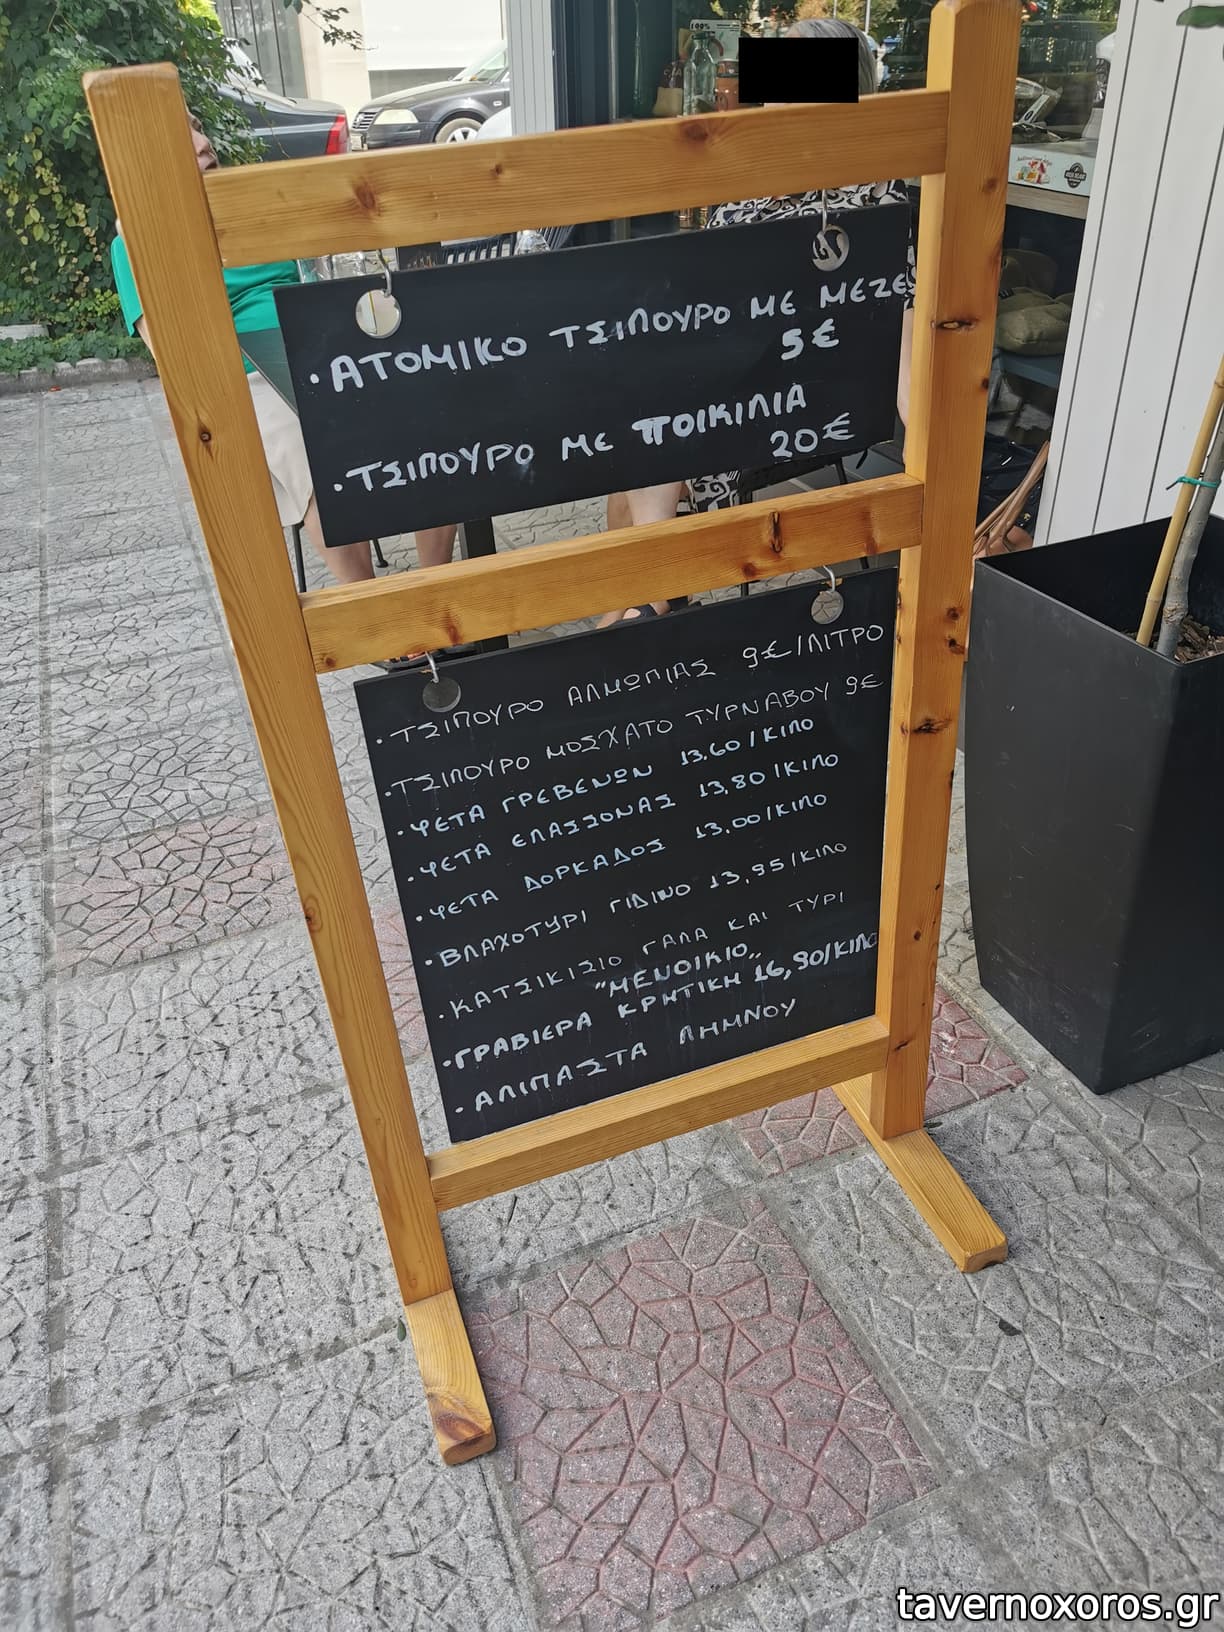 · ΑΤΟΜΙΚΟ ΤΣΙΠΟΥΡΟ ΜΕ ΜΕΖΕ
5€
· ΤΣΙΠΟΥΡΟ ΜΕ ΠΟΙΚΙΛΙΑ
20€
· ΤΣΙΠΟΥΡΟ ΑΛΜΩΠΙΑΣ 9€/ΛΙΤΡΟ
· ΤΣΙΠΟΥΡΟ ΜΟΣΧΑΤΟ ΤΥΡΝΑΒΟΥ 9€
· ΦΕΤΑ ΓΡΕΒΕΝΩΝ 13.60/ΚΙΛΟ
· ΦΕΤΑ ΕΛΑΣΣΟΝΑΣ 13,80/ΚΙΛΟ
· ΦΕΤΑ ΔΟΡΚΑΔΟΣ 13.00/ΚΙΛΟ
· ΒΛΑΧΟΤΥΡΙ ΓΙΔΙΝΟ 13,95/ΚΙΛΟ
· ΚΑΤΣΙΚΙΣΙΟ ΓΑΛΑ ΚΑΙ ΤΥΡΙ
"ΜΕΝΟΙΚΙΟ„
· ΓΡΑΒΙΕΡΑ ΚΡΗΤΙΚΗ 16,90/ΚΙΛΟ
· ΑΛΙΠΑΣΤΑ ΛΗΜΝΟΥ
100%
tavernoxoros.gr